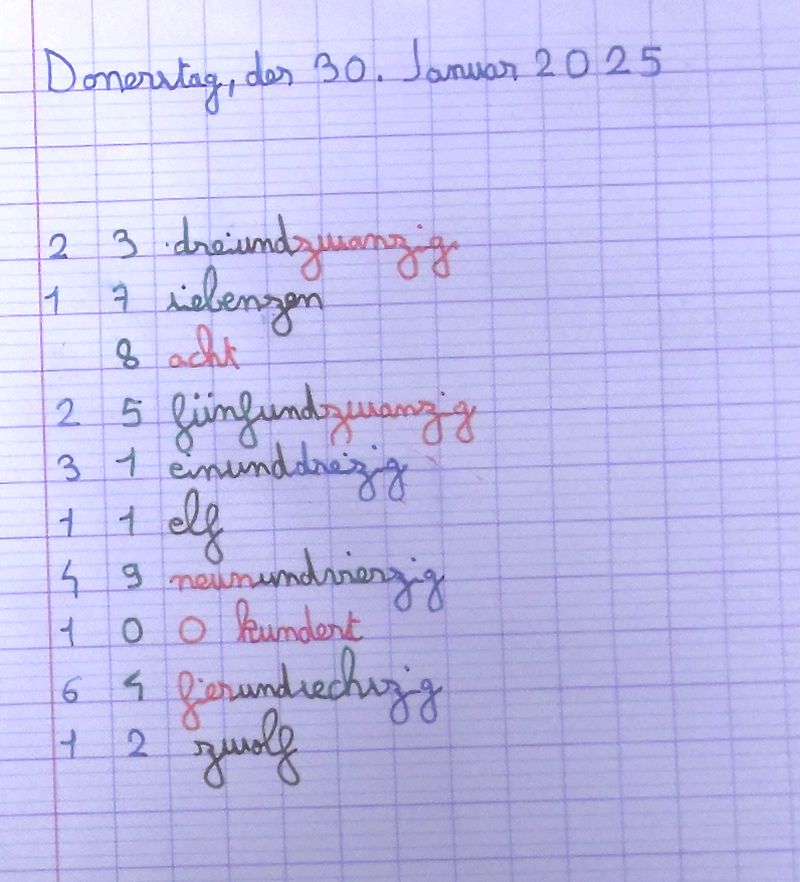 Donerstag, der 30. Januar 2025
2 3 dreiundzwanzig
1 7 siebenzen
8 acht
2 5 fünfundzwanzig
3 1 einunddreizig
1 1 elf
4 9 neunundvierzig
1 0 0 hundert
6 4 fierundsechszig
1 2 zwolf